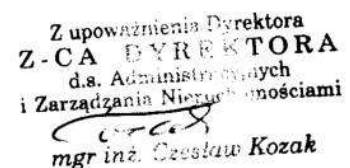 Z upoważnienia Dyrektora
Z-CA DYREKTORA
d.s. Administracyjnych
i Zarządzania Nieruchomościami
mgr inż. Czesław Kozak